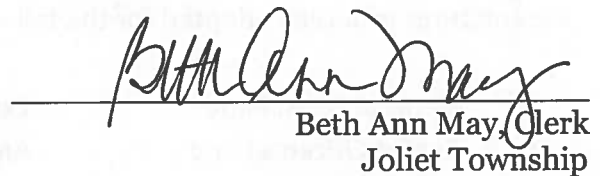 Beth Ann May
Beth Ann May, Clerk
Joliet Township